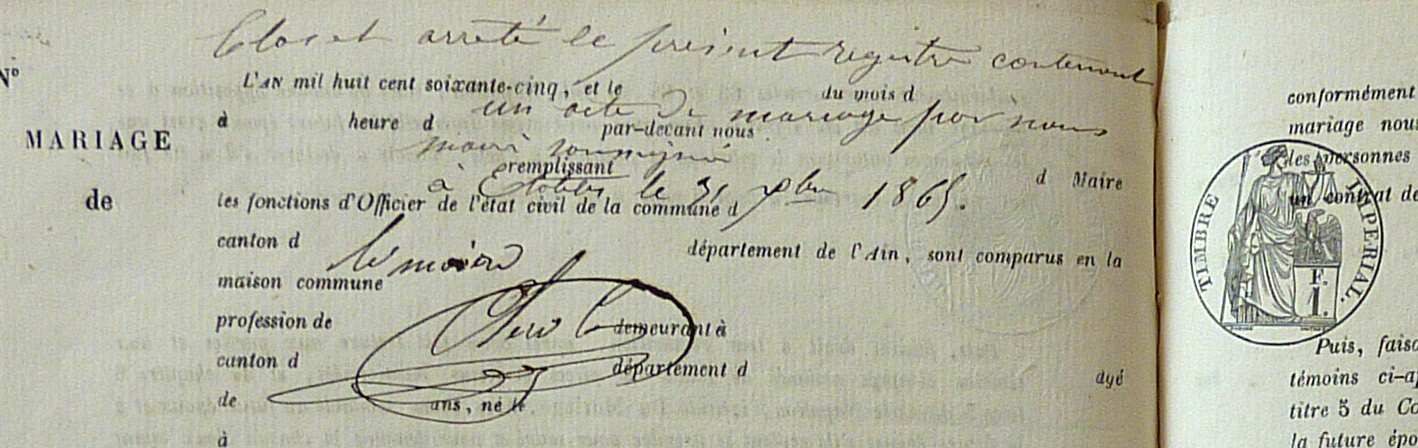 Clos et arreté le présent registre contenant
N°
L'AN mil huit cent soixante-cinq, et le du mois d
un acte de mariage par nous
à heure d par-devant nous
MARIAGE
maire soussigné
remplissant d Maire
à le 31 Xbre 1865.
de
les fonctions d'Officier de l'état civil de la commune d
canton d département de l'Ain, sont comparus en la
le maire
maison commune
profession de demeurant à
canton d département d âgé
de ans, né le
à
conformément
mariage nous
les personnes
un contrat de
TIMBRE IMPERIAL.
F.
1.
Puis, faisa
témoins ci-ap
titre 5 du Co
la future épo